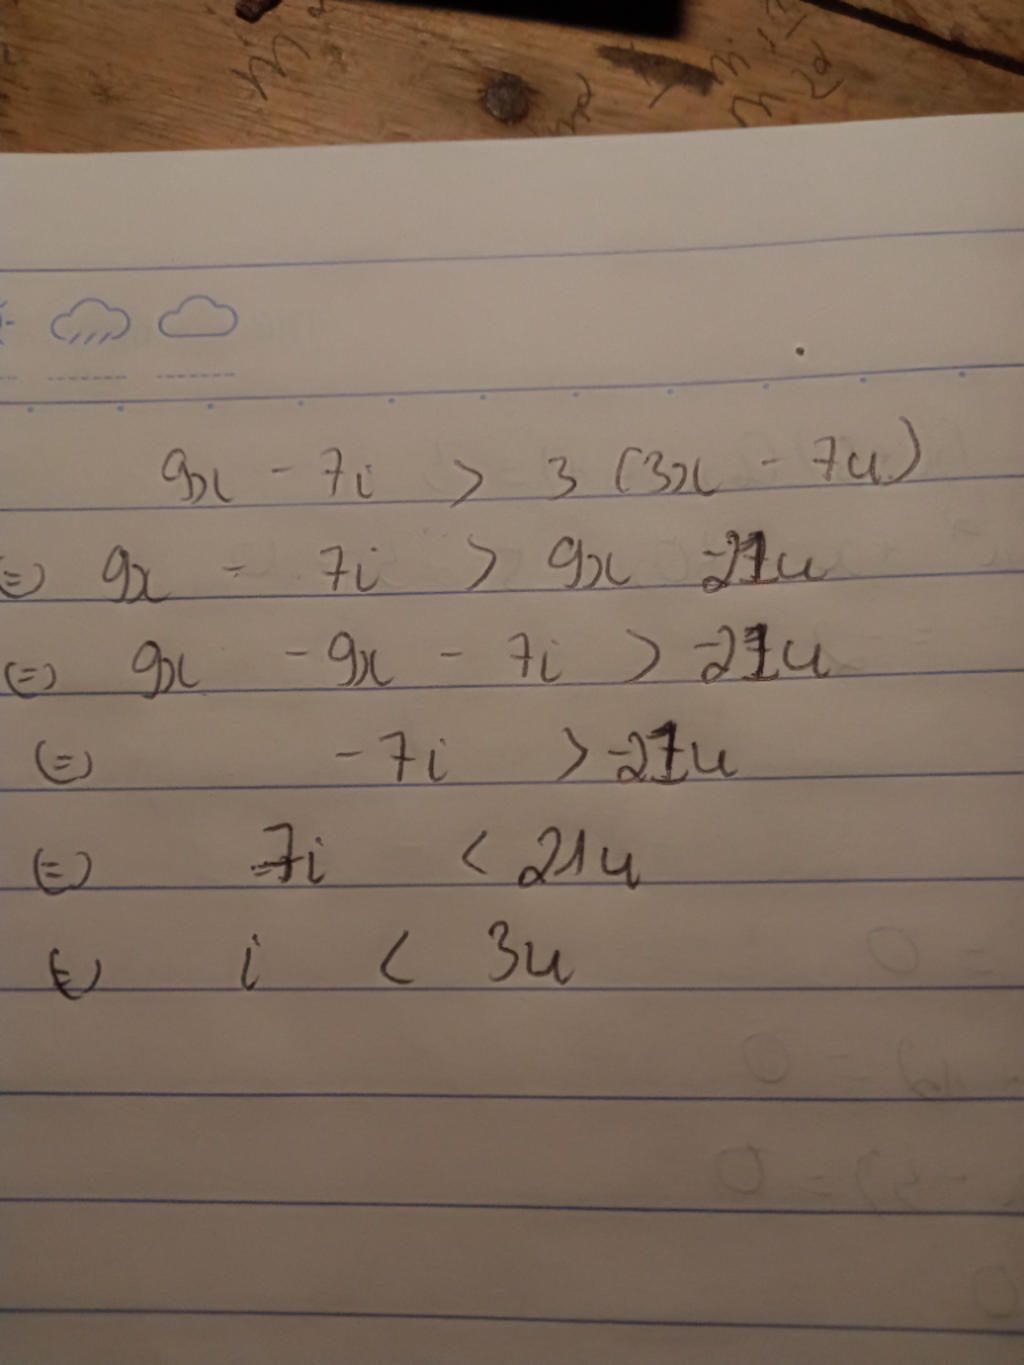 9x - 7i > 3 (3x - 7u)
⇔ 9x - 7i > 9x -21u
⇔ 9x - 9x - 7i > -21u
⇔ -7i > -21u
⇔ 7i < 21u
⇔ i < 3u